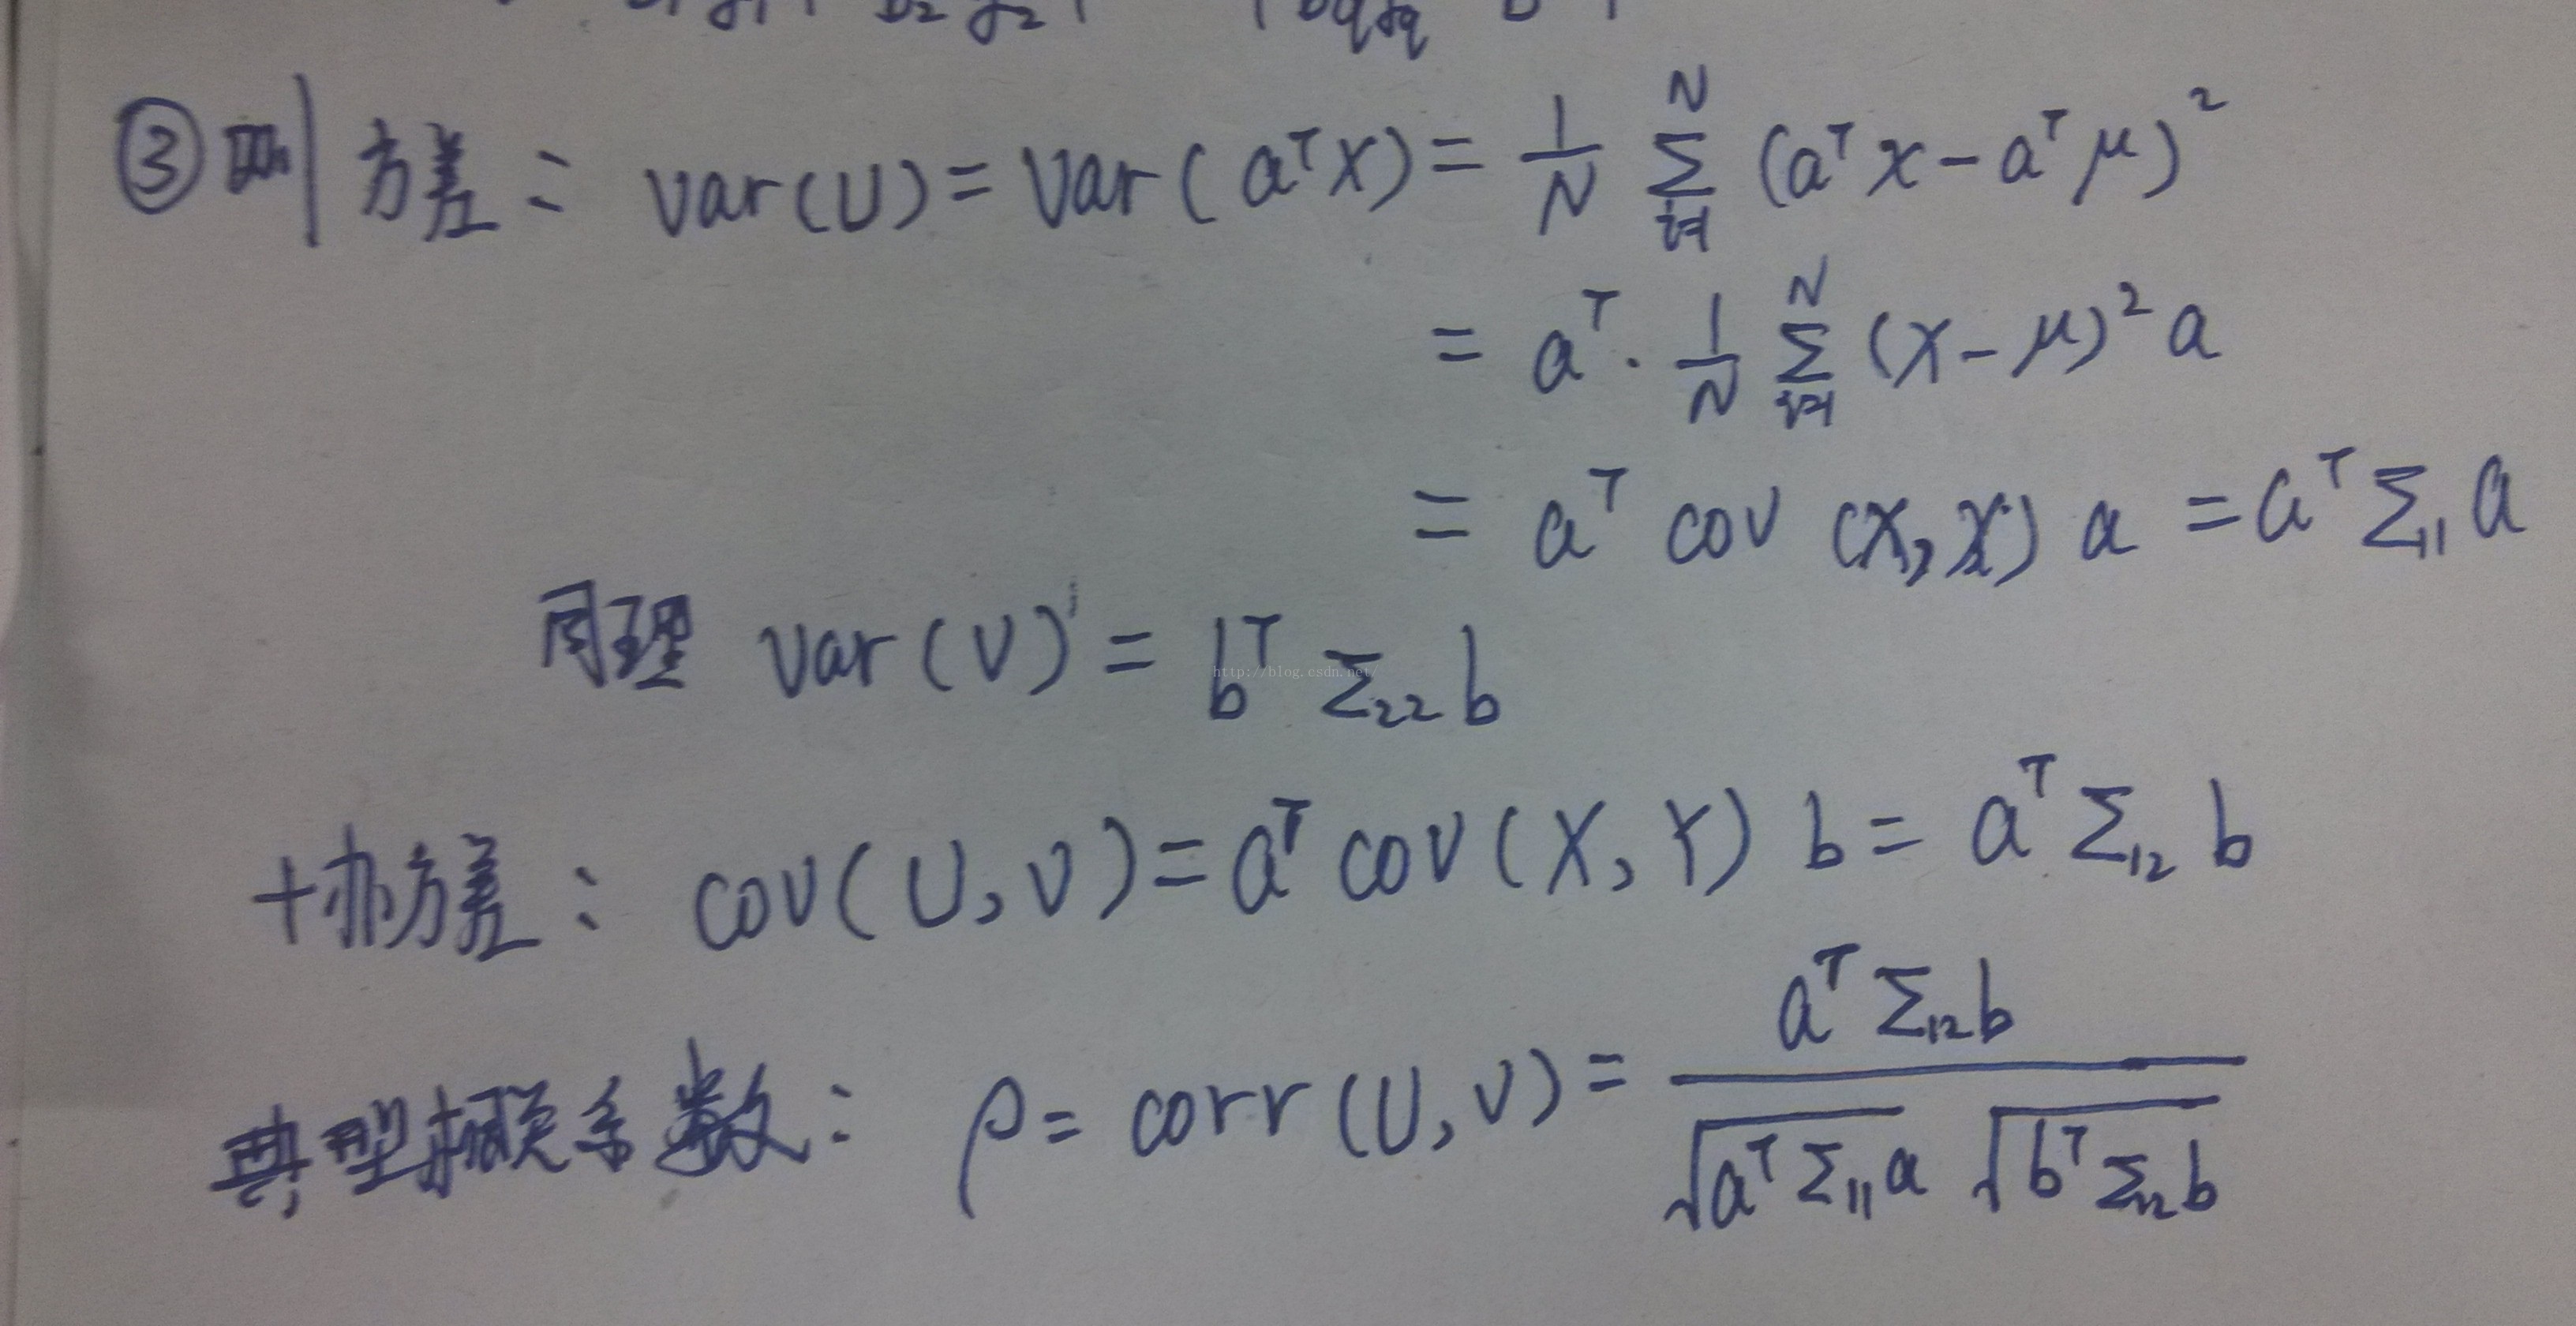 ③则方差: var(U) = Var(aᵀX) = 1/N ∑_{i=1}^{N} (aᵀx - aᵀμ)²
= aᵀ · 1/N ∑_{i=1}^{N} (x - μ)² a
= aᵀ cov (X, X) a = aᵀ Σ₁₁ a
同理 Var(V) = bᵀ Σ₂₂ b
http://blog.csdn.net/
协方差: cov(U, V) = aᵀ cov(X, Y) b = aᵀ Σ₁₂ b
典型相关系数: ρ = corr(U, V) = aᵀ Σ₁₂ b / √(aᵀ Σ₁₁ a) √(bᵀ Σ₂₂ b)